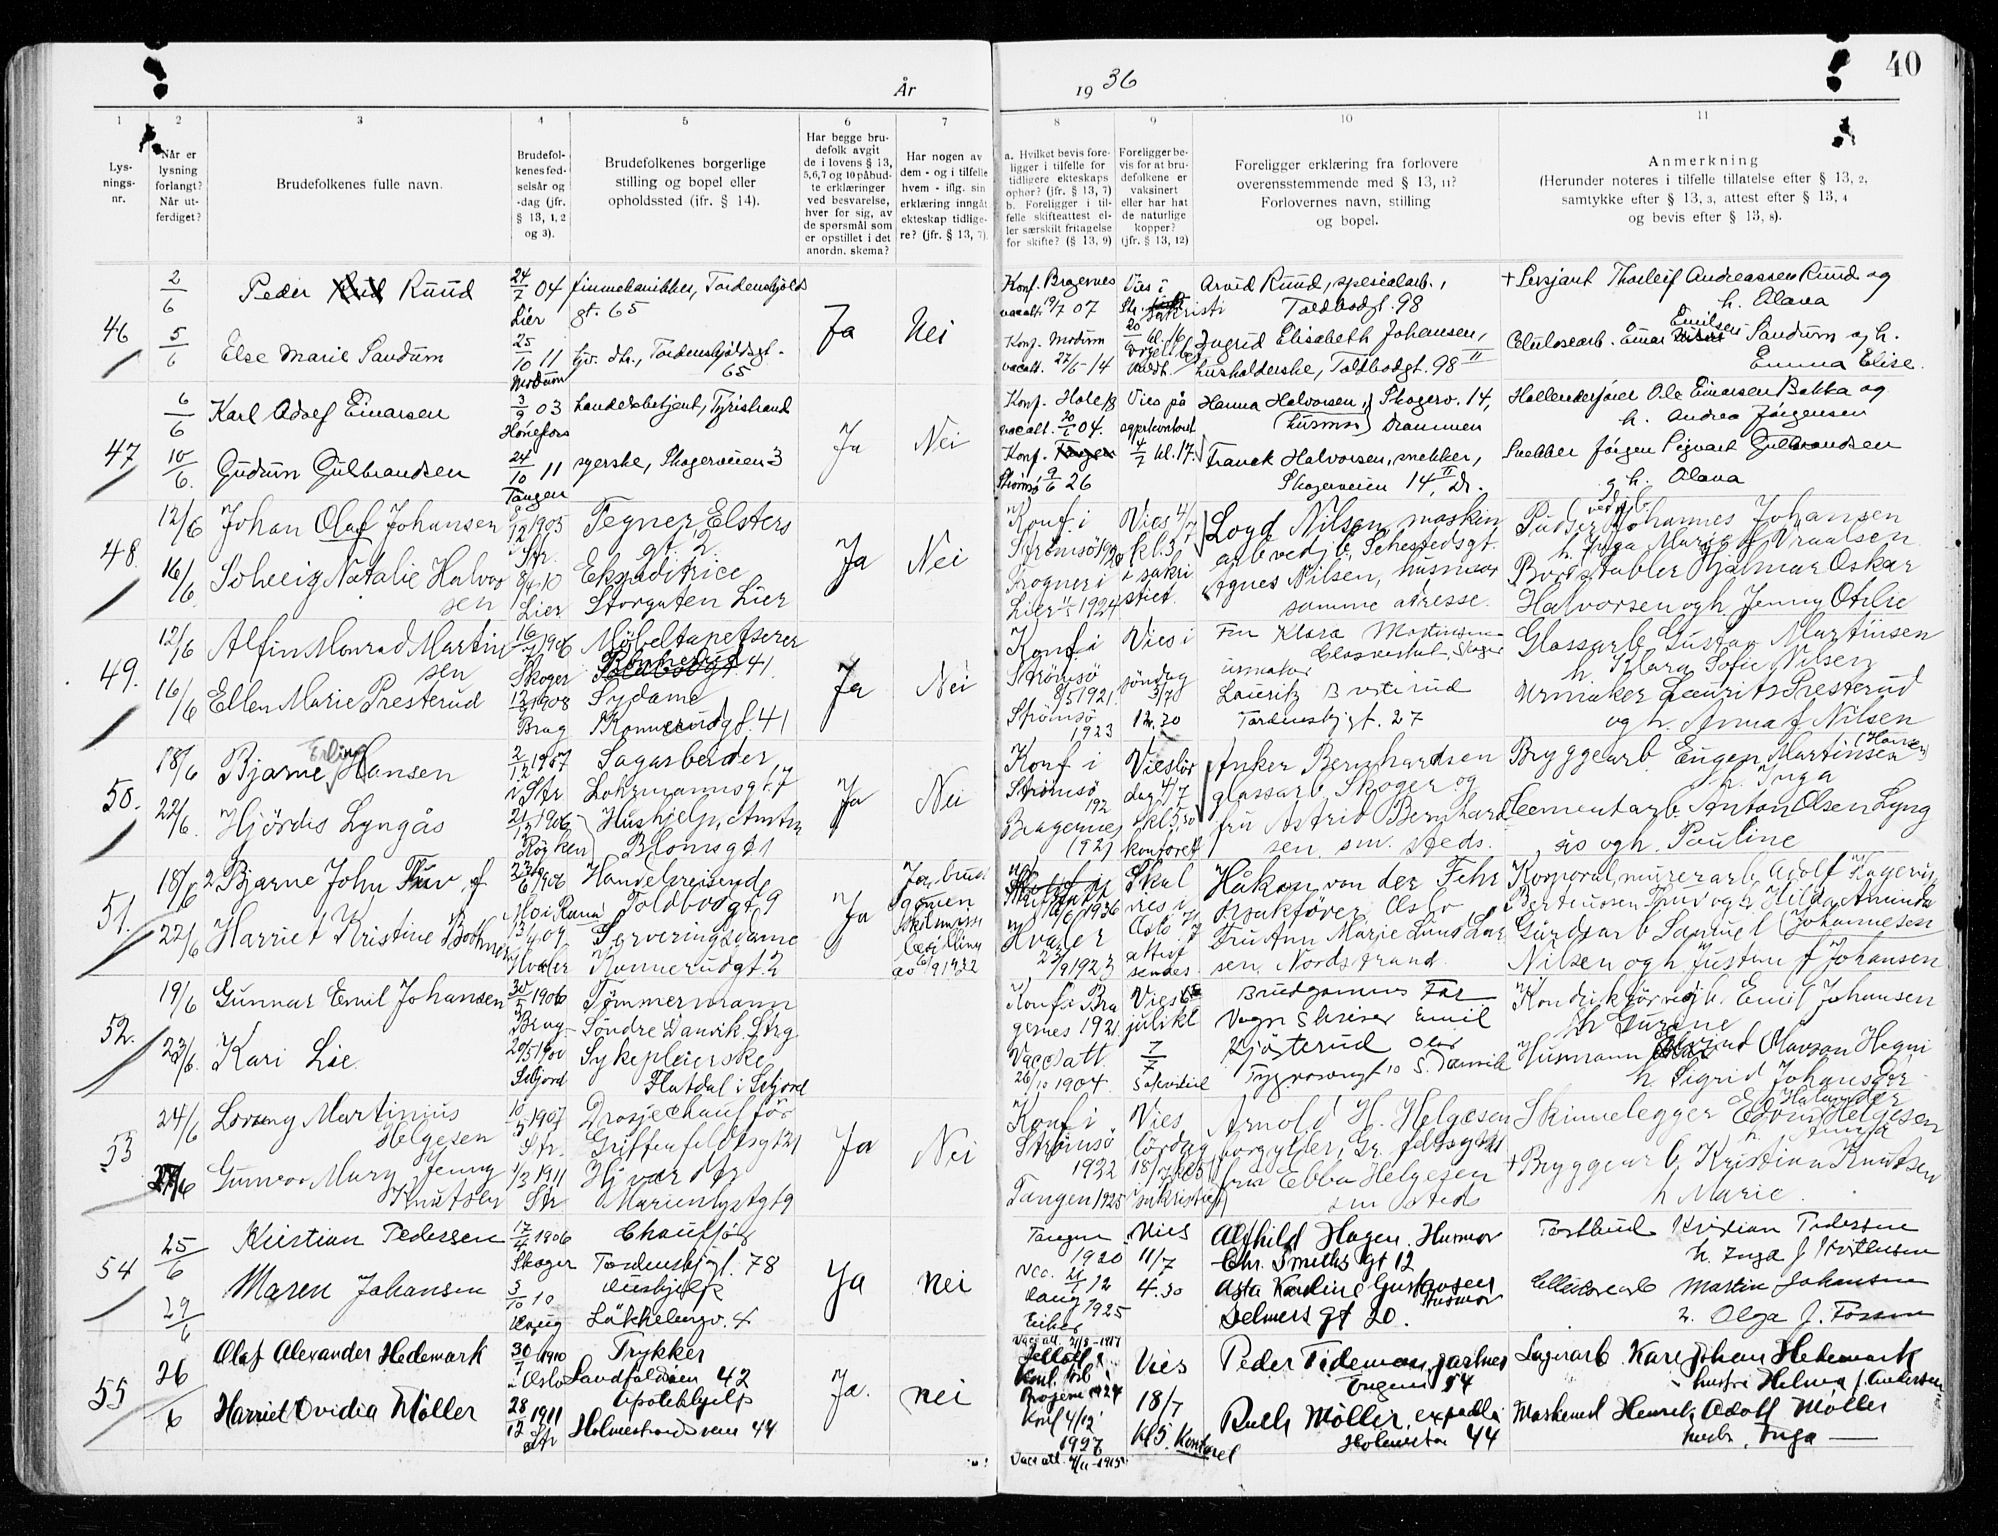 År 1936
40
1 2 3 4 5 6 7 8 9 10 11
Lys-
nings-
nr.
Når er
lysning
forlangt?
Når ut-
ferdiget?
Brudefolkenes fulle navn.
Brudefol-
kenes fød-
selsår og
-dag (jfr.
§ 13, 1, 2
og 3).
Brudefolkenes borgerlige
stilling og bopel eller
opholdssted (jfr. § 14).
Har begge bru-
defolk avgit
de i lovens § 13,
5,6,7 og 10 påbud-
te erklæringer
ved besvarelse,
hver for sig, av
de spørsmål som
er opstillet i det
anordn. skema?
Har nogen av
dem - og i tilfelle
hvem - iflg. sin
erklæring inngåt
ekteskap tidlige-
re? (jfr. § 13, 7).
a. Hvilket bevis fore-
ligger i tilfelle for
tidligere ekteskaps
ophør? (jfr. § 13, 7)
b. Foreligger i til-
felle skifteattest el-
ler særskilt fritagelse
for skifte? (§ 13, 9)
Foreligger be-
vis for at bru-
defolkene er
vaksinert
eller har hat
de naturlige
kopper?
(jfr. § 13, 12)
Foreligger erklæring fra forlovere
overensstemmende med § 13, 11?
Forlovernes navn, stilling
og bopel.
Anmerkning
(Herunder noteres i tilfelle tillatelse efter § 13, 2,
samtykke efter § 13, 3, attest efter § 13, 4
og bevis efter § 13, 8).
46
2/6
5/6
Peder Ruud
Else Marie Sandum
24/7 04
Lier
25/10 11
Modum
finmekanikker, Tordenskjolds
gt. 65
hjv. dtr., Tordenskjoldsgt.
65
Ja
Nei
Konf. Bragernes
vacatt. 19/7 07
Konf. Modum
vacatt. 22/6-14
Vies i
Str.
sakristi
Arvid Ruud, spesialarb.,
Toldbodgt. 98
Ingrid Elisabeth Johansen,
husholderske, Toldbodgt. 98 II
+ Sersjant Thorleif Andreassen Ruud og
h. Olava
Celulosearb. Einar Emilsen Sandum og h.
Emma Elise.
47
6/6
10/6.
Karl Adolf Einarsen
Gudrun Gulbrandsen
3/9 03
Hønefoss
24/10 11
Tangen
handelsbetjent, Tyristrand
syerske, Skogerveien 3
Ja
Nei
Konf. Hole
vacatt. 20/6 04.
Konf. Tangen
Strømsø 9/6 26
Vies på
4/7 kl. 17.
Hanna Halvorsen, Skogerv. 14,
(husmor) Drammen
Franck Halvorsen, snekker,
Skogerveien 14 II, Dr.
Hollenderfører Ole Einarsen Bakka og
h. Andrea Jørgensen
Snekker Jørgen Sigvart Gulbrandsen
og h. Olava
48.
12/6
16/6
Johan Olaf Johansen
Solveig Natalie Halvor
sen
1905
Str.
8/4.10
Lier
Tegner Elsters
gt 2
Ekspeditrice
Storgaten Lier
Ja
Nei
Konf i
Strømsø
Frogner i
Lier 1924
Vies 4/7
kl. 3
i sakri
stiet.
Loyd Nilsen maskin
arb vedjb. Sehestedsgt.
Agnes Nilsen, husmor
samme adresse.
Pudser Johannes Johansen
h. Inga Marie f Vraalsen
Bordstabler Hjalmar Oskar
Halvorsen og h Jenny Otilie
49.
12/6
16/6
Alfin Monrad Martin
sen
Ellen Marie Presterud
16/ 1906
Skoger
12/ 1908
Brag
Møbeltapetserer
41.
Sydame
Konnerudgt. 41
Ja
Nei
Konf i
Strømsø
8/5 1921.
Strømsø
1923
Vies i
søndag
5/7
12.30
Fru Klara Martinsen
Glassverket, Skoger
urmaker
Lauritz Presterud
Tordenskjgt. 27
Glassarb Gustav Martinsen
h. Klara Sofie Nilsen
Urmaker Laurits Presterud
og h. Anna f Nilsen
50.
18/6
22/6.
Bjarne Erling Hansen
Hjördis Lyngås
2/12 1907
Str
21/12 1906
Røyken
Sagarbeider
Lohrmannsgt. 7
Hushjelp, Amtm
Blomsgt 1
Ja
Nei
Konf i
Strømsø
192
Bragernes
1921
Vies lør
dag 4/7
kl 5,30
kontoret
Anker Bernhardsen
glassarb. Skoger og
fru Astrid Bernhard
sen. sm. steds.
Bryggearb Eugen Martinsen (Hansen)
h. Inga
Cementarb Anton Olsen Lyng
ås og h. Pauline
51.
18/6
22/6
Bjarne John Thuv
Harriet Kristine Bothner
23/6 1906
Mo i Rana
13/4 09
Hvaler
Handelsreisende
Toldbodgt 9
Serveringsdame
Konnerudgt. 2
Ja
Ja, brud
gomen
1932
1936
Hvaler
23/9 1923
Skal
vies i
Oslo
attest
sendes
Håkon von der Fehr
sjåfør Oslo
Fru Ann Marie Lund Lar
sen Nordstrand.
Korporal, murerarb Adolf Hagerin
Berteussen Thuv og h. Hilda Amanda
Gårdsarb Samuel (Johannesen
Nilsen og h Justine f Johansen
52.
19/6
23/6.
Gunnar Emil Johansen
Kari Lie
30/5 1906
Brag
20/5 1900
Seljord
Tømmermann
Søndre Danvik Strg
Sykepleierske
Flatdal i Seljord
Konf i Bra
gernes 1921
Vaccatt
26/10 1904.
Vies
juli kl
7/7
Sakristiet
Brudgommens Far
Vogn Skriver Emil
Kjøsterud Olav
Tyrvosengt 10 S. Danvik
Konduktør vedjb Emil Johansen
h Gurine
Husmann Olavson Hegni
h. Sigrid Johansdtr
53
24/6
27/6
Lorang Martinius
Helgesen
Gunvor Mary Jenny
Knutsen
10/5 1907
Str.
1/3 1911
Str
Drosjechauffør
Griffenfeldtsgt 21
Hjvær. dtr
Marienlystgt 9
Ja
Nei
Konf i
Strømsø
1922
Tangen 1925
Vies
lørdag
18/7 kl 5
sakristiet
Arnold H. Helgesen
borgylder, Gr. feldtsgt 21
fru Ebba Helgesen
sm steds
Skinnelegger Edvin Helgesen
h. Anna
+ Bryggearb. Kristian Knutsen
h Marie.
54
25/6
29/6
Kristian Pedersen
Maren Johansen
17/4 1906
Skoger
3/10 10
Haug
Chauffør
Tordenskjgt. 78
Hushjelp
Løkkebergv. 4
Ja
nei
Tangen
1920
vac. 21/ 12
Haug 1925
Eiker
Vies
11/7
4.30
Alfhild Hagen. Husmor
Chr. Smiths gt 12
Asta Karoline Gustavsen
Husmor
Selmers gt 20.
Tastbud Kristian Pedersen
h. Inga f. Kristensen
Cellulosearb Martin Johansen
h. Olga f. Fossum
55
26/6
Olaf Alexander Hedemark
Harriet Ovidia Møller
30/1 1910
Oslo
28/12 1911
Str
Trykker
Landfaldøien 42
Apotekhjelp
Holmestrandsveien 44
Ja.
nei
Vacc att. 21/8-1917
Bragerne 1924
Konf 4/12
1927
Vacc att. 4/11-1915
Vies
18/7
Kl 5. Kontoret
Peder Tideman, gartner
Engene 54
Ruth Møller, exped.
Holmestr 44
Lagerarb. Karl Johan Hedemark
hustru Helma f. Andersen
Maskinmd Henrik Adolf Møller
hustr. Inga